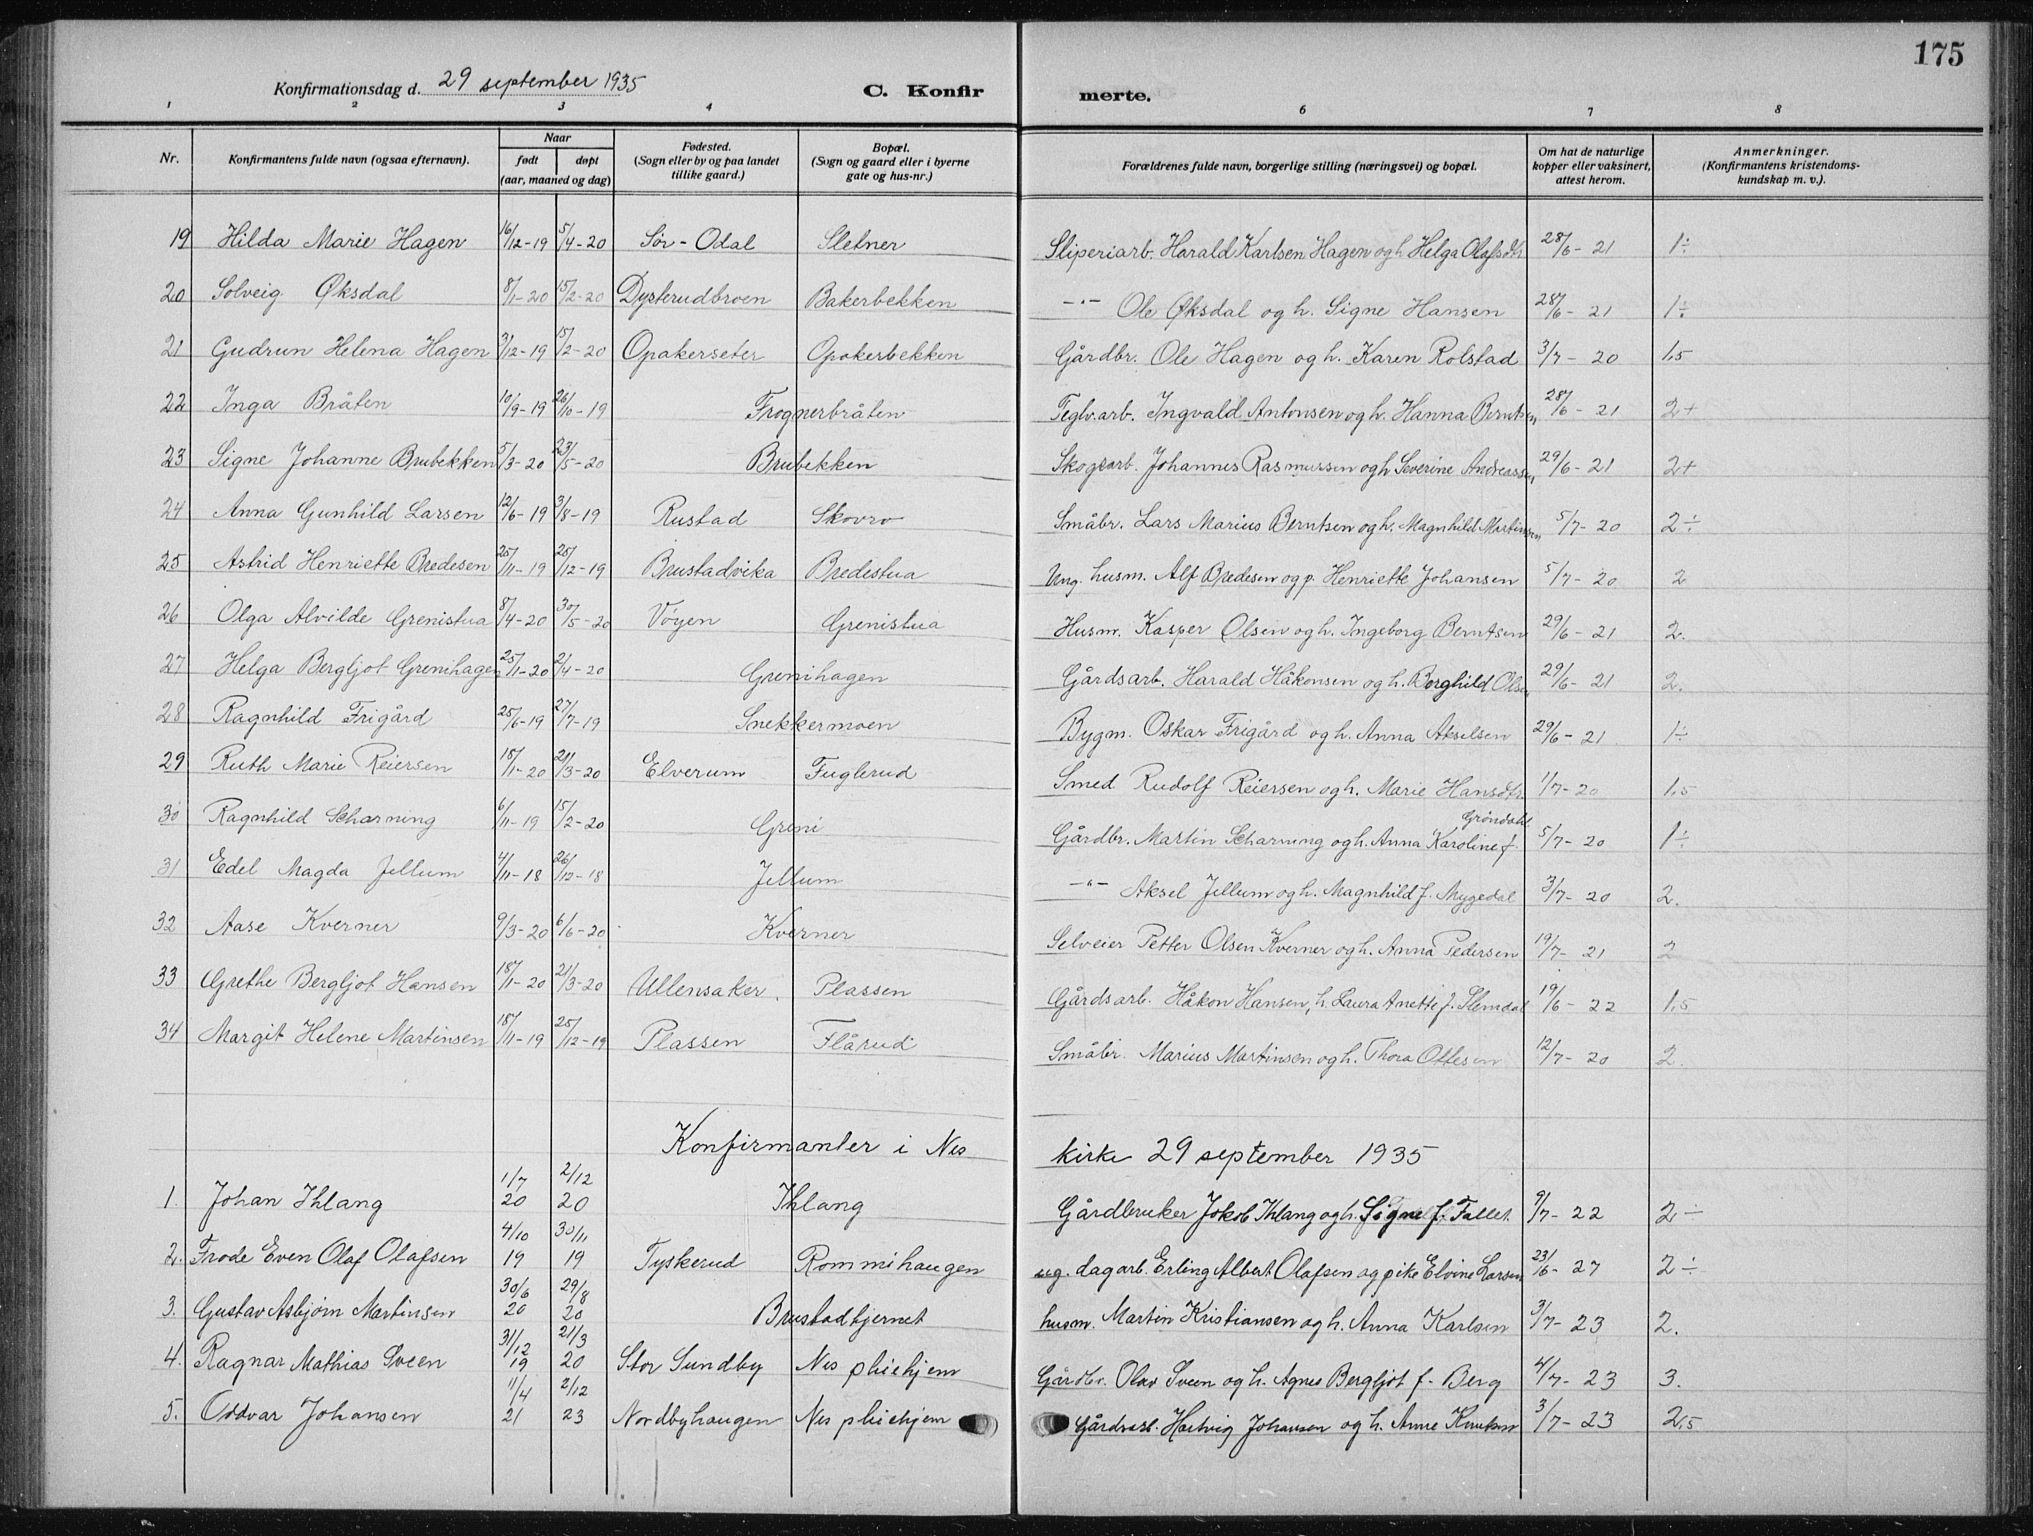 175
Konfirmationsdag d. 29 september 1935 C. Konfir merte.
1 2 3 4 6 7 8
Nr. Konfirmantens fulde navn (ogsaa efternavn). Naar født døpt (aar, maaned og dag) Fødested. (Sogn eller by og paa landet tillike gaard.) Bopæl. (Sogn og gaard eller i byerne gate og hus-nr.) Forældrenes fulde navn, borgerlige stilling (næringsvei) og bopæl. Om hat de naturlige kopper eller vaksinert, attest herom. Anmerkninger. (Konfirmantens kristendoms-kundskap m. v.).
19 Hilda Marie Hagen 16/12-19 5/4-20 Sør-Odal Sletner Sliperiarb. Harald Karlsen Hagen og h. Helga Olafsdtr 28/6-21 1÷
20 Solveig Øksdal 8/1-20 15/2-20 Dysterudbroen Bakerbekken -"- Ole Øksdal og h. Signe Hansen 28/6-21 1÷
21 Gudrun Helena Hagen 3/12-19 15/2-20 Opakerseter Opakerbekken Gårdbr. Ole Hagen og h. Karen Rolstad 3/7-20 1,5
22 Inga Bråten 10/9-19 26/10-19 Frognerbråten Teglv.arb. Ingvald Antonsen og h. Hanna Berntsen 28/6-21 2+
23 Signe Johanne Brubekken 5/3-20 23/5-20 Brubekken Skogsarb. Johannes Rasmussen og h. Severine Andreassen 29/6-21 2+
24 Anna Gunhild Larsen 12/6-19 3/8-19 Rustad Skovro Småbr. Lars Marius Berntsen og h. Magnhild Martinsen 5/7-20 2÷
25 Astrid Henriette Bredesen 25/11-19 25/12-19 Brustadvika Bredestua Ung. husm. Alf Bredesen og p. Henriette Johansen 5/7-20 2
26 Olga Alvilde Grenistua 8/4-20 30/5-20 Vøyen Grenistua Husm. Kasper Olsen og h. Ingeborg Berntsen 29/6-21 2.
27 Helga Bergljot Grenihagen 25/1-20 2/4-20 Grenihagen Gårdsarb. Harald Håkonsen og h. Borghild Olsen 29/6-21 2.
28 Ragnhild Frigård 25/6-19 27/7-19 Snekkermoen Bygm. Oskar Frigård og h. Anna Akselsen 29/6-21 1÷
29 Ruth Marie Reiersen 18/1-20 21/3-20 Elverum Fuglerud Smed Rudolf Reiersen og h. Marie Hansdtr 1/7-20 1,5
30 Ragnhild Scharning 6/11-19 15/2-20 Greni Gårdbr. Martin Scharning og h. Anna Karoline f. Grøndahl 5/7-20 1÷
31 Edel Magda Jellum 4/11-18 26/12-18 Jellum -"- Aksel Jellum og h. Magnhild f. Mygedal 3/7-20 2.
32 Aase Kverner 9/3-20 6/6-20 Kverner Selveier Petter Olsen Kverner og h. Anna Pedersen 19/7-21 2
33 Grethe Bergljot Hansen 18/1-20 21/3-20 Ullensaker. Plassen Gårdsarb. Håkon Hansen, h. Laura Anette f. Slemdal 19/6-22 1,5
34 Margit Helene Martinsen 18/11-19 25/12-19 Plassen Flårud Småbr. Marius Martinsen og h. Thora Ottesen 12/7-20 2.
Konfirmanter i Nes kirke 29 september 1935
1. Johan Ihlang 1/7 20 2/12 20 Ihlang Gårdbruker Jakob Ihlang og h. Signe f. Fallet 9/7-22 2÷
2. Frode Even Olaf Olafsen 4/10 19 30/11 19 Tyskerud Rommihaugen ug. dagarb. Erling Albert Olafsen og pike Elvine Larsen 23/6-27 2÷
3. Gustav Asbjørn Martinsen 30/6 20 29/8 20 Brustadtjernet husm. Martin Kristiansen og h. Anna Karlsen 3/7-23 2.
4. Ragnar Mathias Sveen 31/12 19 21/3 20 Stor Sundby Nes pleiehjem Gårdbr. Olav Sveen og h. Agnes Bergljot f. Berg 4/7-23 3.
5. Oddvar Johansen 11/4 21 2/12 23 Nordbyhaugen Nes pleiehjem Gårdsarb. Hartvig Johansen og h. Anne Knutsen 3/7-23 2,5